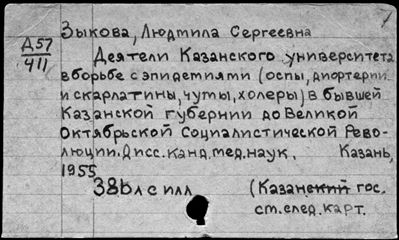 Зыкова, Людмила Сергеевна
Д57
411
Деятели Казанского университета
в борьбе с эпидемиями (оспы, дифтерии
и скарлатины, чумы, холеры) в бывшей
Казанской губернии до Великой
Октябрьской Социалистической Рево-
люции. Дисс. канд. мед. наук. Казань,
1955
386 л с илл (Казанский гос.
ст. след. карт.